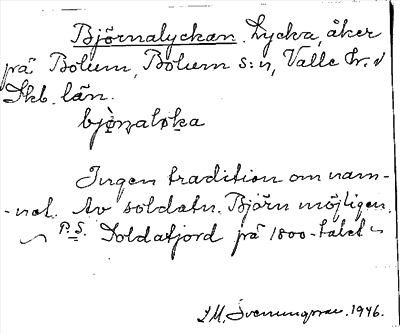 Björnalyckan. Lycka, åker
på Bolum, Bolum s:n, Valle hr.
Skb. län.
bjò̤ṇalø̤ka
Ingen tradition om nam-
-net. Av soldatn. Björn möjligen.
P.S. Soldatjord på 1800-talet
I.M. Svenungsson. 1946.